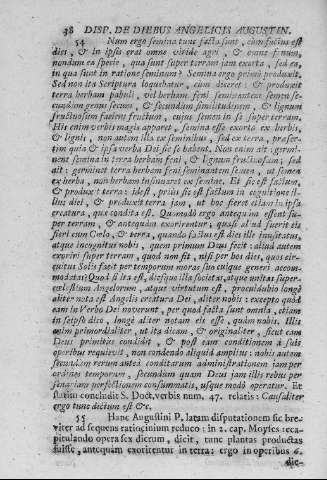 38 DISP. DE DIEBUS ANGELICIS AUGUSTIN.
54 Num ergo semina tunc facta sunt, cum factus est
dies, & in ipsis erat omne viride agri, & omne fœnum,
nondum ea specie, qua sunt super terram jam exorta, sed ea
in qua sunt in ratione seminum? Semina ergo primò produxit.
Sed non ita Scriptura loquebatur, cum diceret: & produxit
terra herbam pabuli, vel herbam feni seminantem semen se-
cundùm genus suum, & secundum similitudinem, & lignum
fructuosum faciens fructum, cujus semen in se super terram.
His enim verbis magis apparet, semina esse exorta ex herbis,
& lignis, non autem illa ex seminibus, sed ex terra, præser-
tim quia & ipsa verba Dei sic se habent. Non enim ait: germi-
nent semina in terra herbam feni, & lignum fructuosum; sed
ait: germinet terra herbam feni seminantem semen, ut semen
ex herba, non herbam insinuaret ex semine. Et sic est factum,
& produxit terra: id est, priùs sic est factum in cognitione il-
lius diei, & produxit terra jam, ut hoc fieret etiam in ipsa
creatura, quæ condita est. Quomodo ergo antequam essent su-
per terram, & antequam exorirentur; quasi aliud fuerit eis
fieri cum Cœlo, & terra, quando factus est dies ille inusitatus,
atque incognitus nobis, quem primum Deus fecit: aliud autem
exoriri super terram, quod non fit, nisi per hos dies, quos cir-
cuitus Solis facit per temporum moras suo cuique generi accom-
modatas? Quod si ita est, diesque illa societas, atque unitas super-
cœlestium Angelorum, atque virtutum est, proculdubio longè
aliter nota est Angelis creatura Dei, aliter nobis: excepto quòd
eam in Verbo Dei noverunt, per quod facta sunt omnia, etiam
in seipsa dico, longè aliter notam eis esse, quàm nobis. Illis
enim primordialiter, ut ita dicam, & originaliter, sicut eam
Deus primitùs condidit, & post eam conditionem à suis
operibus requievit, non condendo aliquid ampliùs: nobis autem
secundùm rerum anteà conditarum administrationem jam per
ordines temporum, secundùm quam Deus jam illis rebus per
senariam perfectionem consummatis, usque modò operatur. Et
statim concludit S. Doct. verbis num. 47. relatis: Causaliter
ergo tunc dictum est &c.
55 Hanc Augustini P. latam disputationem sic bre-
viter ad sequens ratiocinium reduco: in 2. cap. Moyses reca-
pitulando opera sex dierum, dicit, tunc plantas productas
fuisse, antequam exorirentur in terra: ergo in operibus 6.
die-